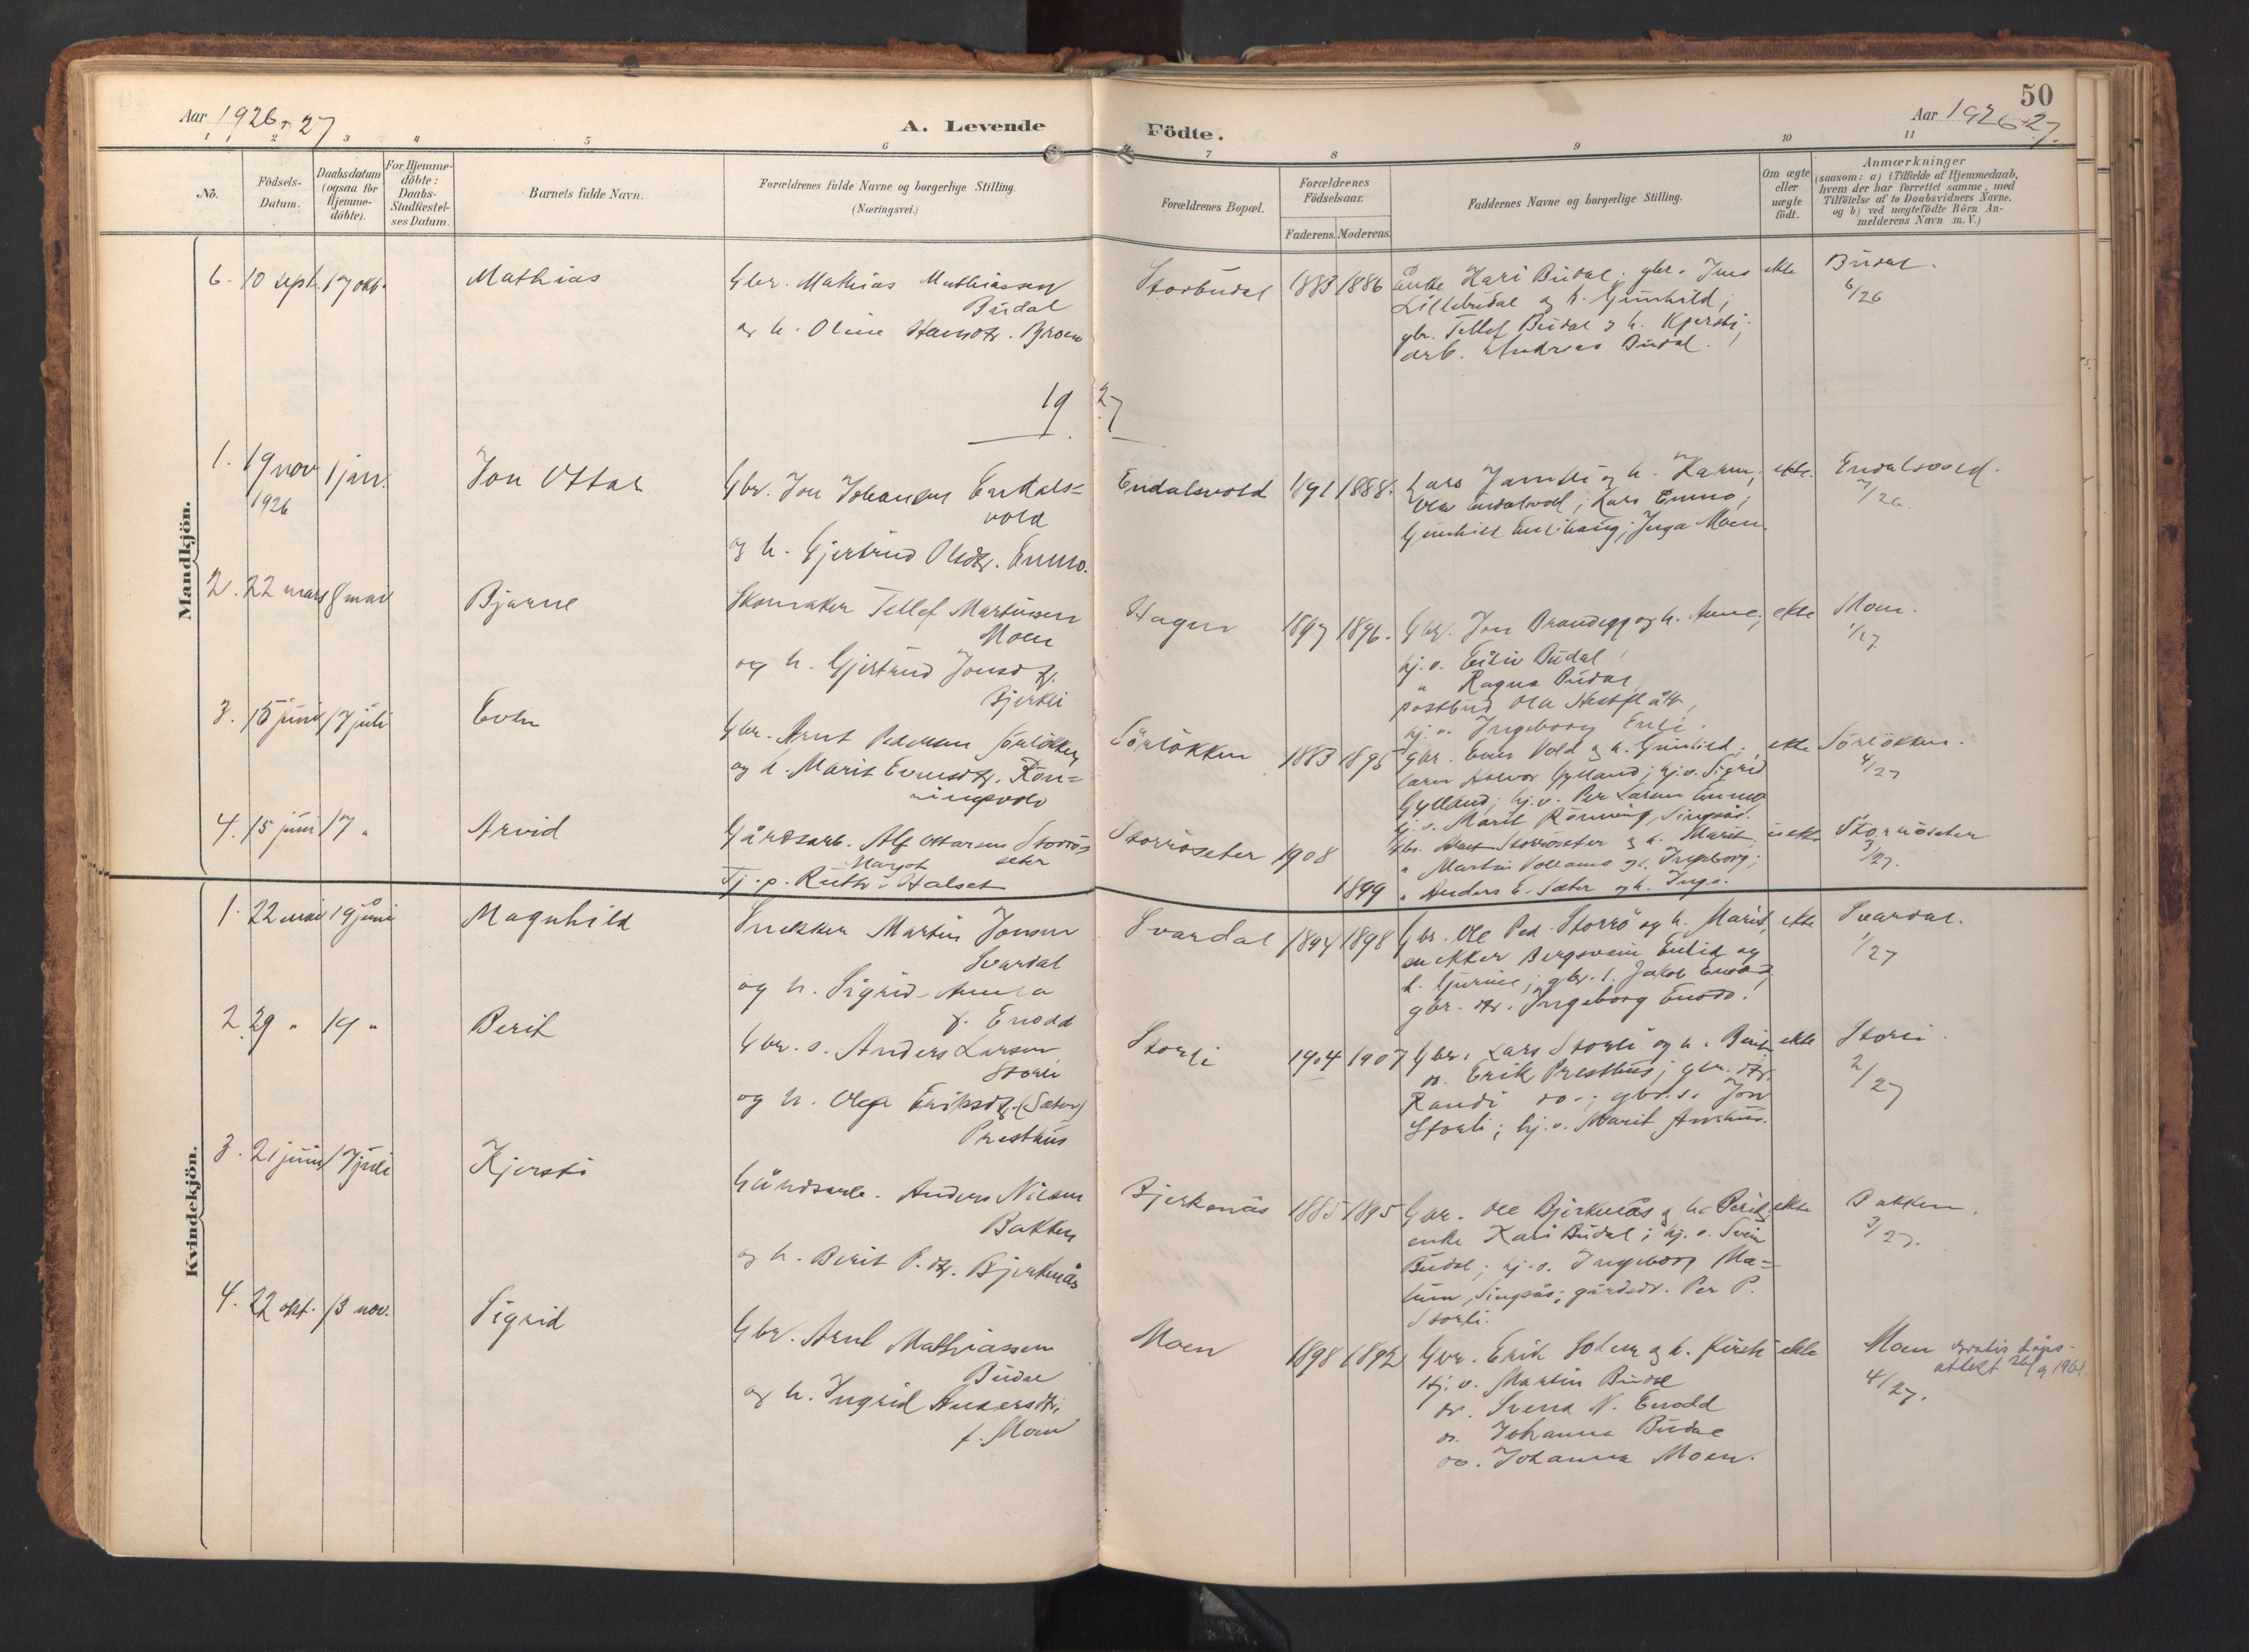 50
Aar 1926-27
A. Levende
Födte.
Aar 1926-27.
1 2 3 4 5 6 7 8 9 10 11
No.
Födsels-
Datum.
Daabsdatum
(ogsaa for
Hjemme-
döbte).
For Hjemme-
döbte:
Daabs-
Stadfæstel-
ses Datum.
Barnets fulde Navn.
Forældrenes fulde Navne og borgerlige Stilling.
(Næringsvei.)
Forældrenes Bopæl.
Forældrenes
Födselsaar.
Faderens. Moderens.
Faddernes Navne og borgerlige Stilling.
Om ægte
eller
uægte
födt.
Anmærkninger
(saasom: a) i Tilfælde af Hjemmedaab,
hvem der har forrettet samme, med
Tilföielse af to Daabsvidners Navne.
og b) ved uægtefödte Börn An-
melderens Navn m. V.)
Mandkjön.
6. 10 sept. 17 okt. Mathias
Gbr. Mathias Mathiassen
Budal
og h. Oline Hansdtr. Broen
Storbudal 1883 1886
Enke Kari Budal; gbr. Jens
Lillebudal og h. Gunhild;
gbr. Tellef Budal og h. Kjersti;
arb. Andreas Budal.
ekte
Budal.
6/26
1927
1. 19 nov 1 jan. Jon Ottar
1926
Gbr. Jon Johansen Endals-
vold
og h. Gjertrud Olsdtr. Enmo.
Endalsvold 1891 1888.
Lars og h. Karen;
Ola Endalsvold; Lars Enmo;
Gunhild Enlihaug; Inga Moen.
ekte.
Endalsvold.
7/26
2. 22 mars 8 mai Bjarne
Skomaker Tellef Martinsen
Moen
og h. Gjertrud Jonsd
Bjerkli
Hagen 1897 1896.
Gbr. Jon Brandegg og h. Anne;
hj.v. Eiliv Budal
" Ragna Budal,
postbud Ola Nestflått,
hj.v. Ingeborg Enli.
ekte
Moen.
1/27
3. 15 juni 17 juli Even
Gbr. Arnt Pedersen Sörlökken
og h. Marit Evensdtr. Rön-
ningvold
Sörlökken 1883 1895
gbr. Even Vold og h. Gunhild;
Halvor Gylland; hj.v. Sigrid
Gylland; hj.v. Per Larsen Enmo
hj.v. Marit Rönning, Singsås.
ekte
Sörlökken.
4/27
4. 15 juni 17 " Arvid
Gårdsarb. Alf Ottarsen Storrös-
seter
Tj.p. Ruth Margot Halset
Storröseter 1908
1899
Gbr. Storröseter og h. Marit
" Martin Vollamo og h. Ingeborg;
" Anders E. Sæter og h. Inga.
uekte
Storröseter
3/27.
Kvindekjön.
1. 22 mai 19 juni Magnhild
Snekker Martin Jonsen
Svardal
og h. Sigrid Anna
f. Enodd
Svardal 1894 1898
Gbr. Ole Ped. Storrö og h. Marit,
snekker Bergsvein Enlid og
h. Gurine; gbr.s. Jakob Enodd;
gbr. dtr. Ingeborg Enodd.
ekte
Svardal.
1/27
2. 29 " 19 " Berit
Gbr. s. Anders Larsen
Storli
og h. Olga Eriksdtr. (Sæter)
Presthus
Storli 1904 1907
Gbr. Lars Storli og h. Berit
do. Erik Presthus; gbr. dtr.
Randi do.; gbr.s. Jon
Storli; hj.v. Marit Aunhus.
ekte
Storli.
2/27
3. 21 juni 17 juli Kjersti
Gårdsarb. Anders Nilsen
Bakken
og h. Berit P. dtr. Bjerkenås
Bjerkenås 1885 1895
Gbr. Ole Bjerkenås og h. Berit;
enke Kari Budal; hj.v. Svein
Budal; hj.v. Ingeborg Ma-
lum, Singsås; gårdsdr. Per P.
Storli.
ekte
Bakken.
3/27.
4. 22 okt. 13 nov. Sigrid
Gbr. Arnt Mathiassen
Budal
og h. Ingrid Andersdtr.
f. Moen
Moen 1898 1892
Gbr. Erik Solem og h. Kirsti
Hj.v. Martin Budal
do. Svend N. Enodd
do. Johanna Budal
do. Johanna Moen.
ekte
Moen gratis dåps-
attest 26/9 1961
4/27.